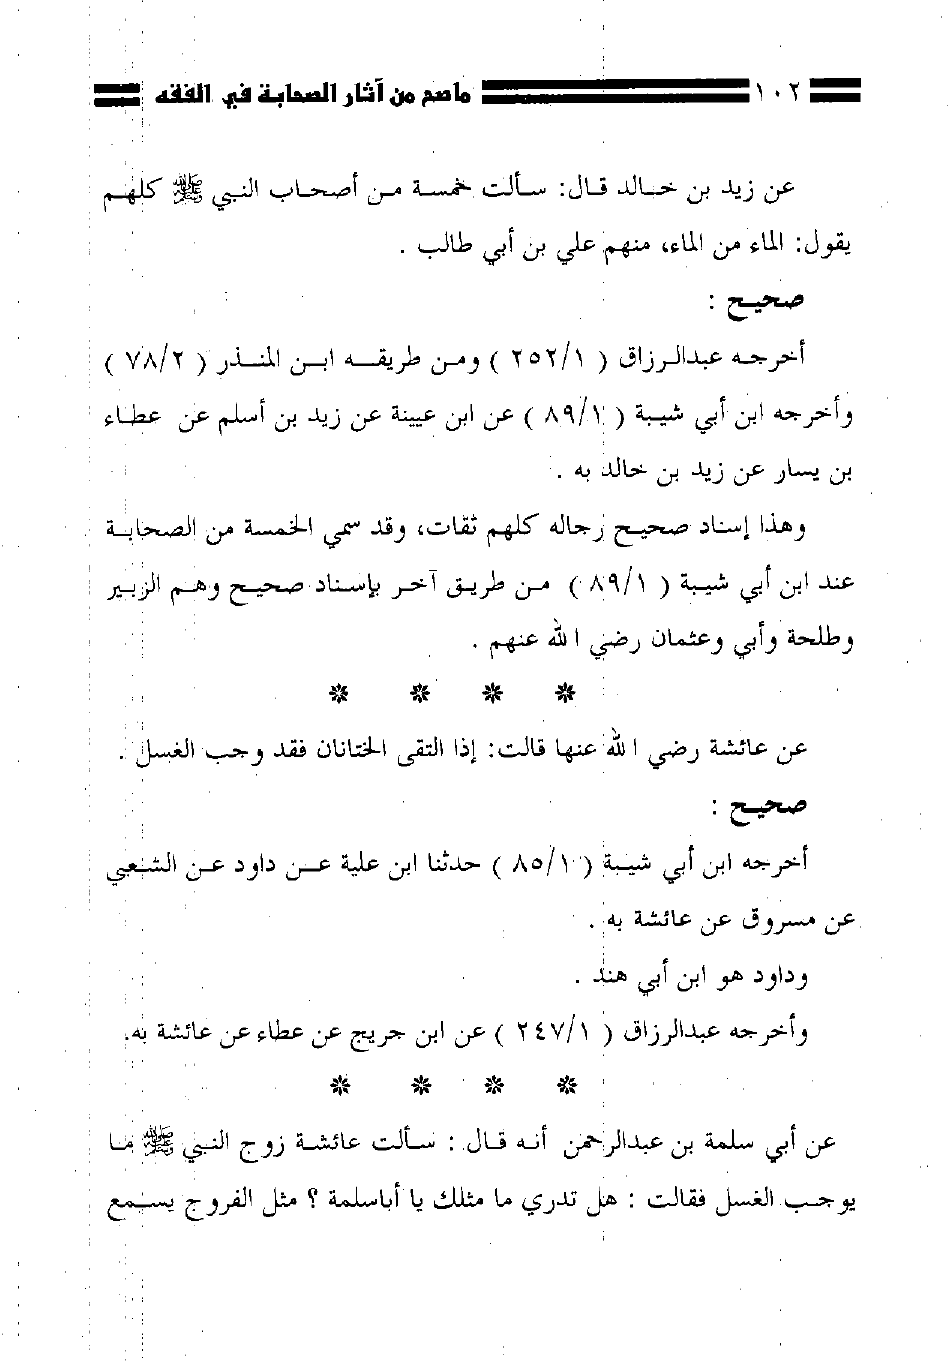 ١٠٢ ماصح من آثار الصحابة في الفقه
عن زيد بن خالد قال: سألت خمسة من أصحاب النبي ﷺ كلهم
يقول: الماء من الماء، منهم علي بن أبي طالب .
صحيح :
أخرجه عبدالرزاق ( ٢٥٢/١ ) ومن طريقه ابن المنذر ( ٧٨/٢ )
وأخرجه ابن أبي شيبة ( ٨٩/١ ) عن ابن عيينة عن زيد بن أسلم عن عطاء
بن يسار عن زيد بن خالد به .
وهذا إسناد صحيح رجاله كلهم ثقات، وقد سمي الخمسة من الصحابة
عند ابن أبي شيبة ( ٨٩/١ ) من طريق آخر بإسناد صحيح وهم الزبير
وطلحة وأبي وعثمان رضي الله عنهم .
* * * *
عن عائشة رضي الله عنها قالت: إذا التقى الختانان فقد وجب الغسل .
صحيح :
أخرجه ابن أبي شيبة ( ٨٥/١ ) حدثنا ابن علية عن داود عن الشعبي
عن مسروق عن عائشة به .
وداود هو ابن أبي هند .
وأخرجه عبدالرزاق ( ٢٤٧/١ ) عن ابن جريج عن عطاء عن عائشة به.
* * * *
عن أبي سلمة بن عبدالرحمن أنه قال : سألت عائشة زوج النبي ﷺ ما
يوجب الغسل فقالت : هل تدري ما مثلك يا أباسلمة ؟ مثل الفروج يسمع